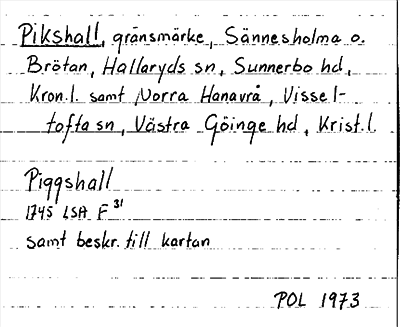 Pikshall, gränsmärke, Sännesholma o.
Brötan, Hallaryds sn, Sunnerbo hd,
Kron.l. samt Norra Hanavrå, Vissel-
tofta sn, Västra Göinge hd, Krist.l.
Piggshall
1745 LSA F 31
samt beskr. till kartan
POL 1973